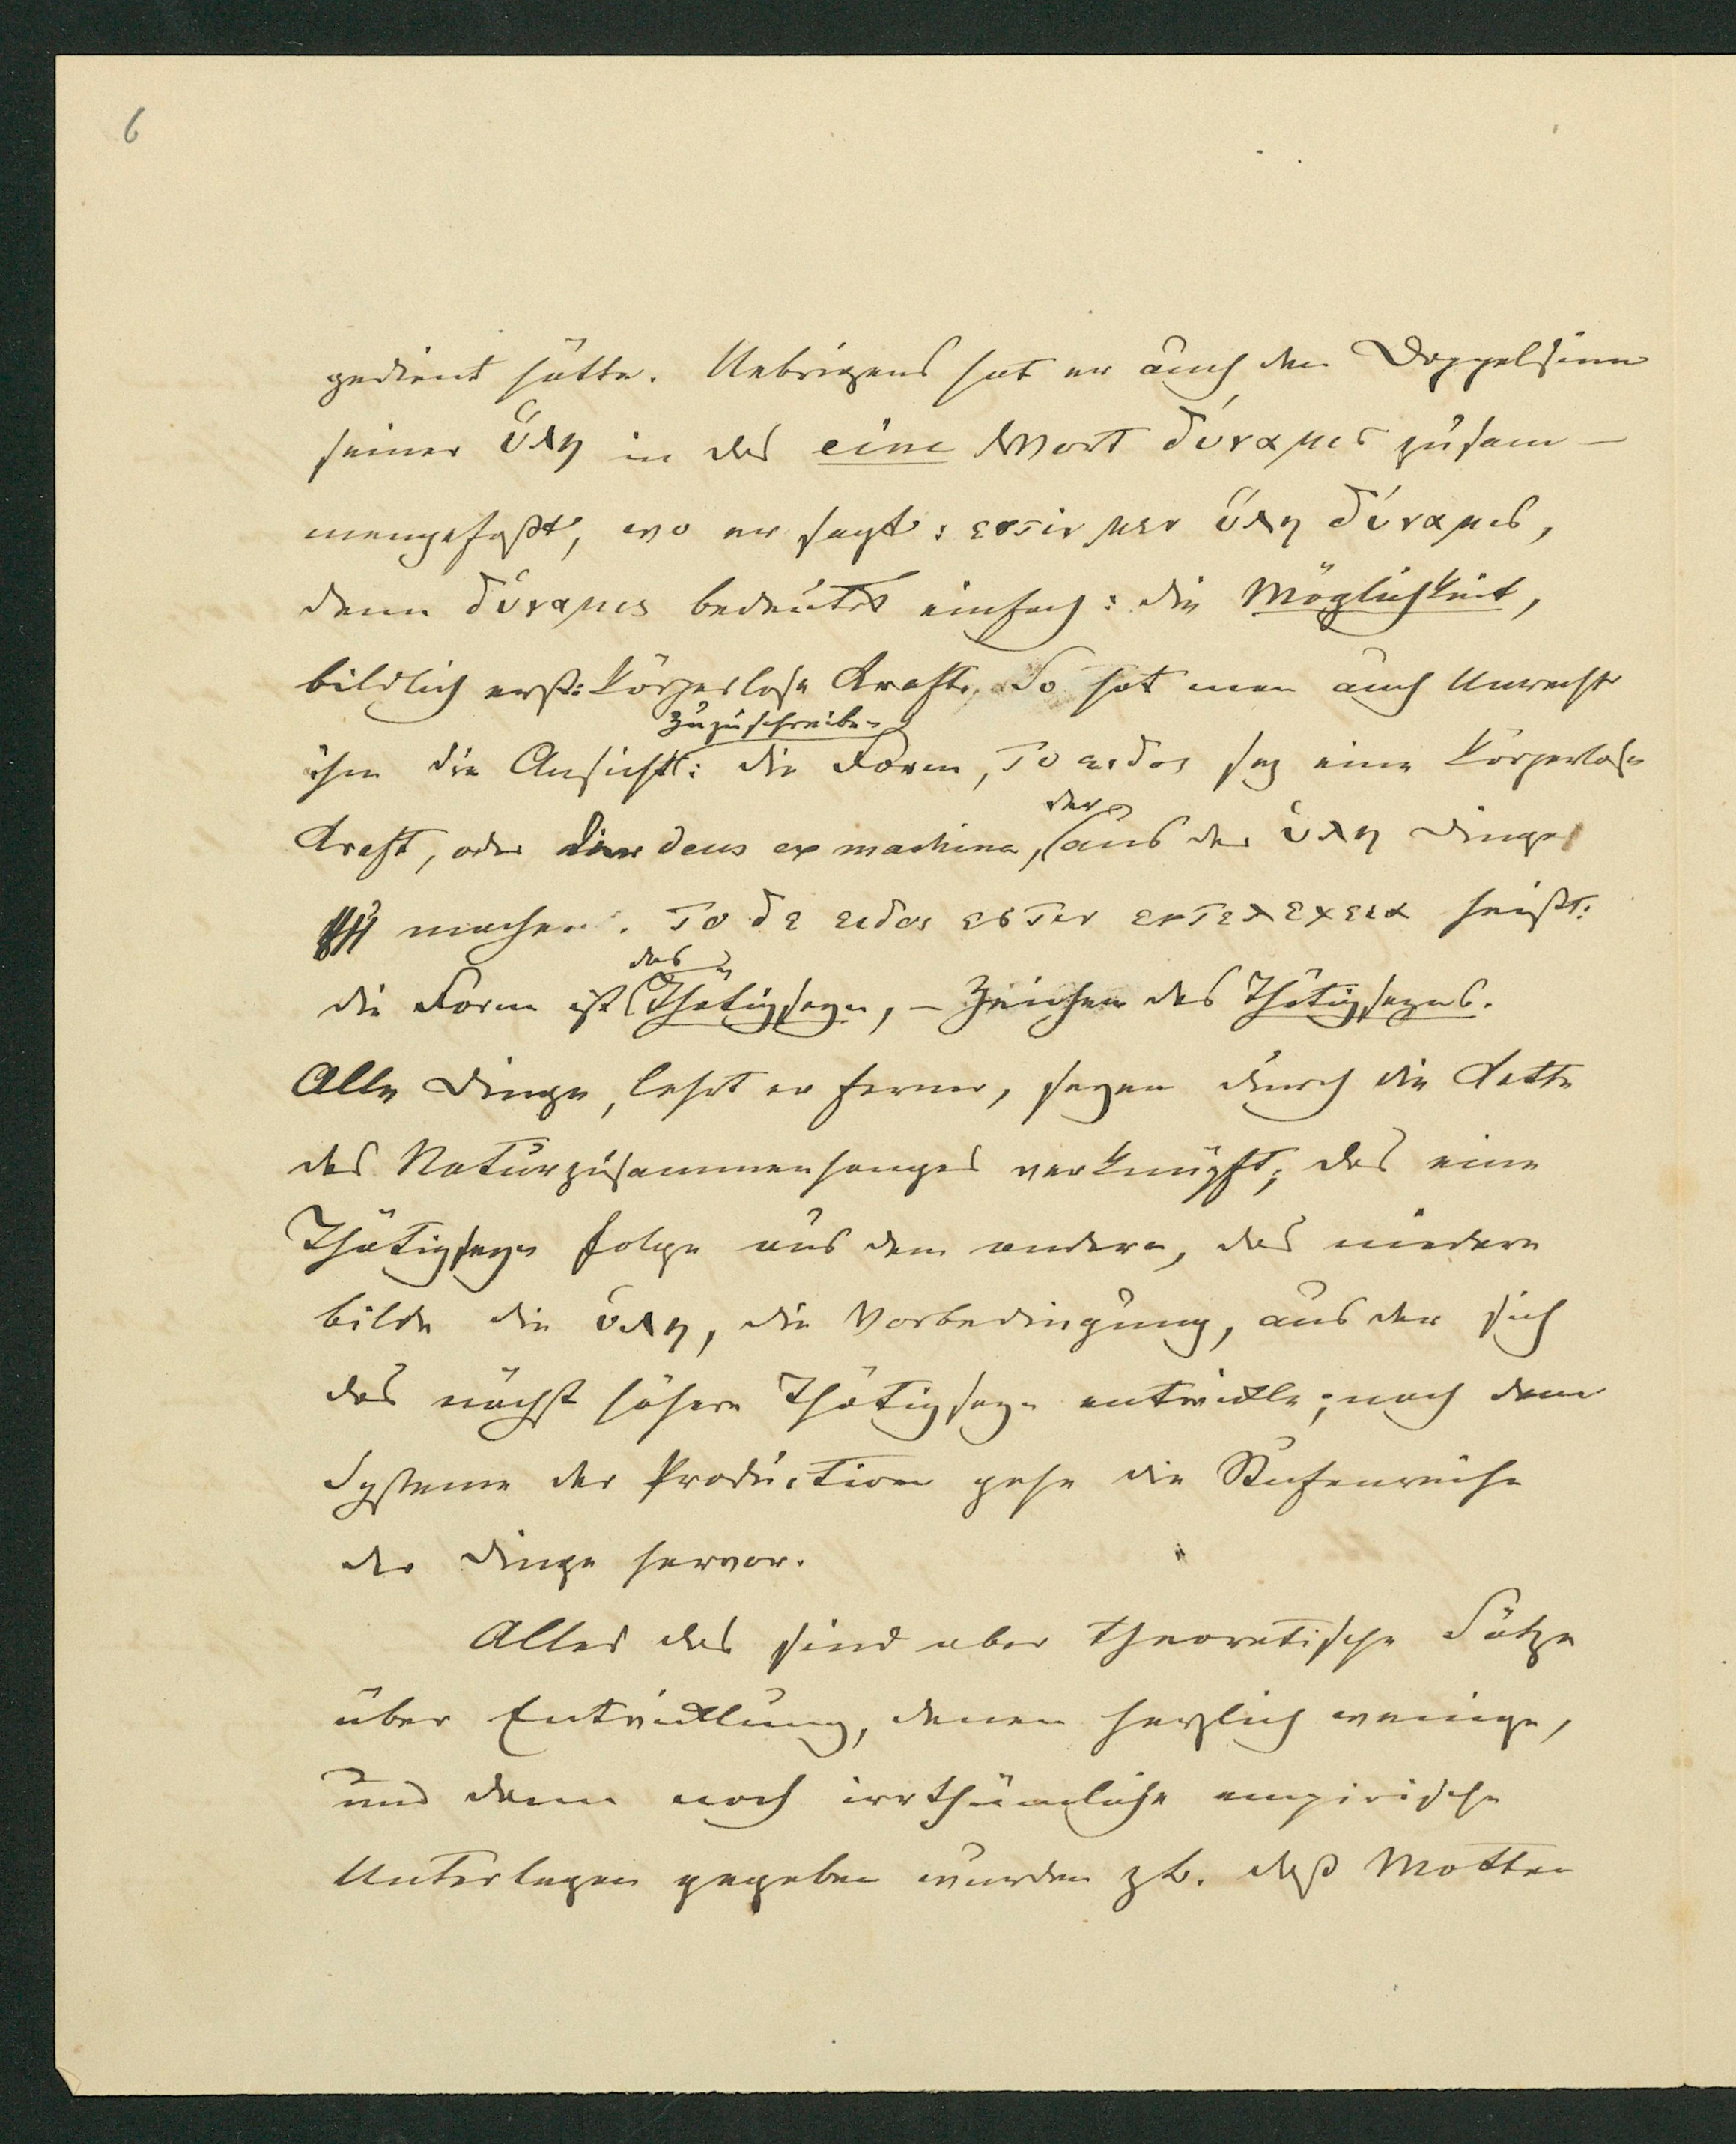 6
gedient hätte. Uebrigens hat er auch den Doppelsinn
seiner ὕλη in das eine Wort δύναμις zusam-
mengefaßt, wo er sagt: εστιν μεν ὕλη δύναμις,
denn δύναμις bedeutet einfach: die Möglichkeit,
bildlich erst: körperlose Kraft. So hat man auch Unrecht
zuzuschreiben
ihm die Ansicht: die Form, το ειδος sey eine körperlose
der
Kraft, oder deus ex machina, aus der ὑλη Dinge
machen. το δε ειδος εστιν εντελεχεια heißt:
das
die Form ist Thätigseyn, – Zeichen des Thätigseyns.
Alle Dinge, lehrt er ferner, seyen durch die Kette
des Naturzusammenhanges verknüpft; das eine
Thätigseyn folge aus dem andern, das niedere
bilde die ὑλη, die Vorbedingung, aus der sich
das nächst höhere Thätigseyn entwickle; nach dem
Systeme der Production gehe die Stufenreihe
der Dinge hervor.
Alles das sind aber theoretische Sätze
über Entwicklung, denen herzlich wenige,
und dann noch irrthümliche empirische
Unterlagen gegeben wurden zb. daß Motten